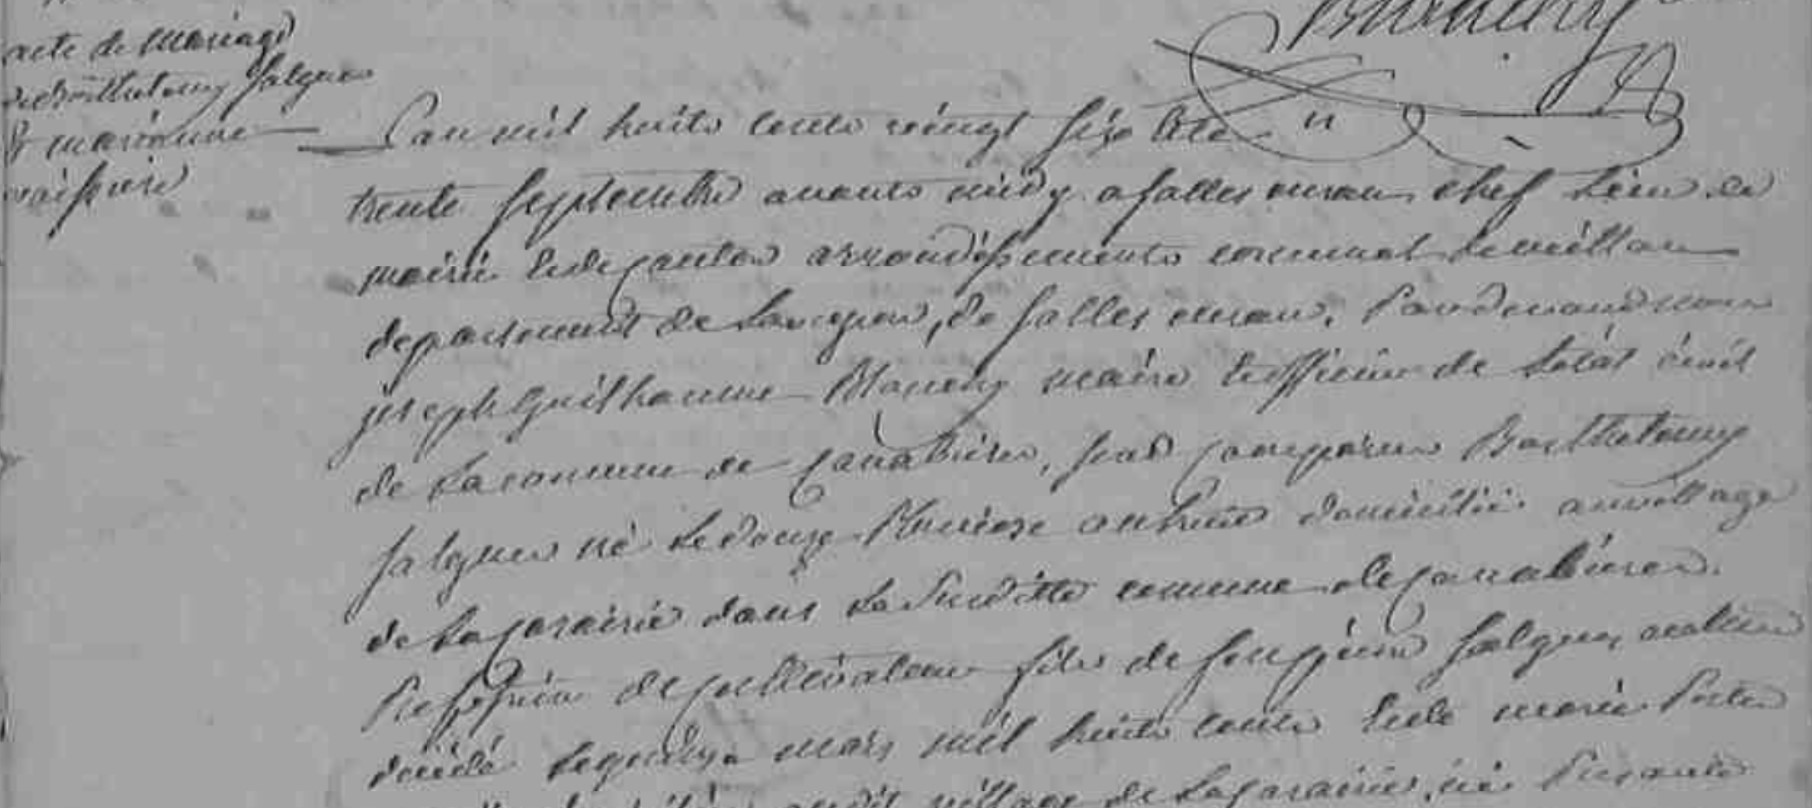 acte de mariage
de Barthelemy Salgues
& marianne
vaissiere
Lan mil huits cents vingt six et le
trente Septembre avants midy a salles curan chef lieu de
mairie et de canton arrondissements communal de millau
departement de Laveyron, de salles curan. Pardevand nous
joseph Guilhaume Maurey maire et officier de Letat civil
de La commune de Canabieres, sont comparus Barthelemy
Salgues né le douze Pluviose an huit domicilié au village
de La dans La Suditte commune de Canabieres.
Profession de cultivateur fils de feu pierre Salgues audit lieu
décédé le quinze mars mil huits cents et de marie
audit village de